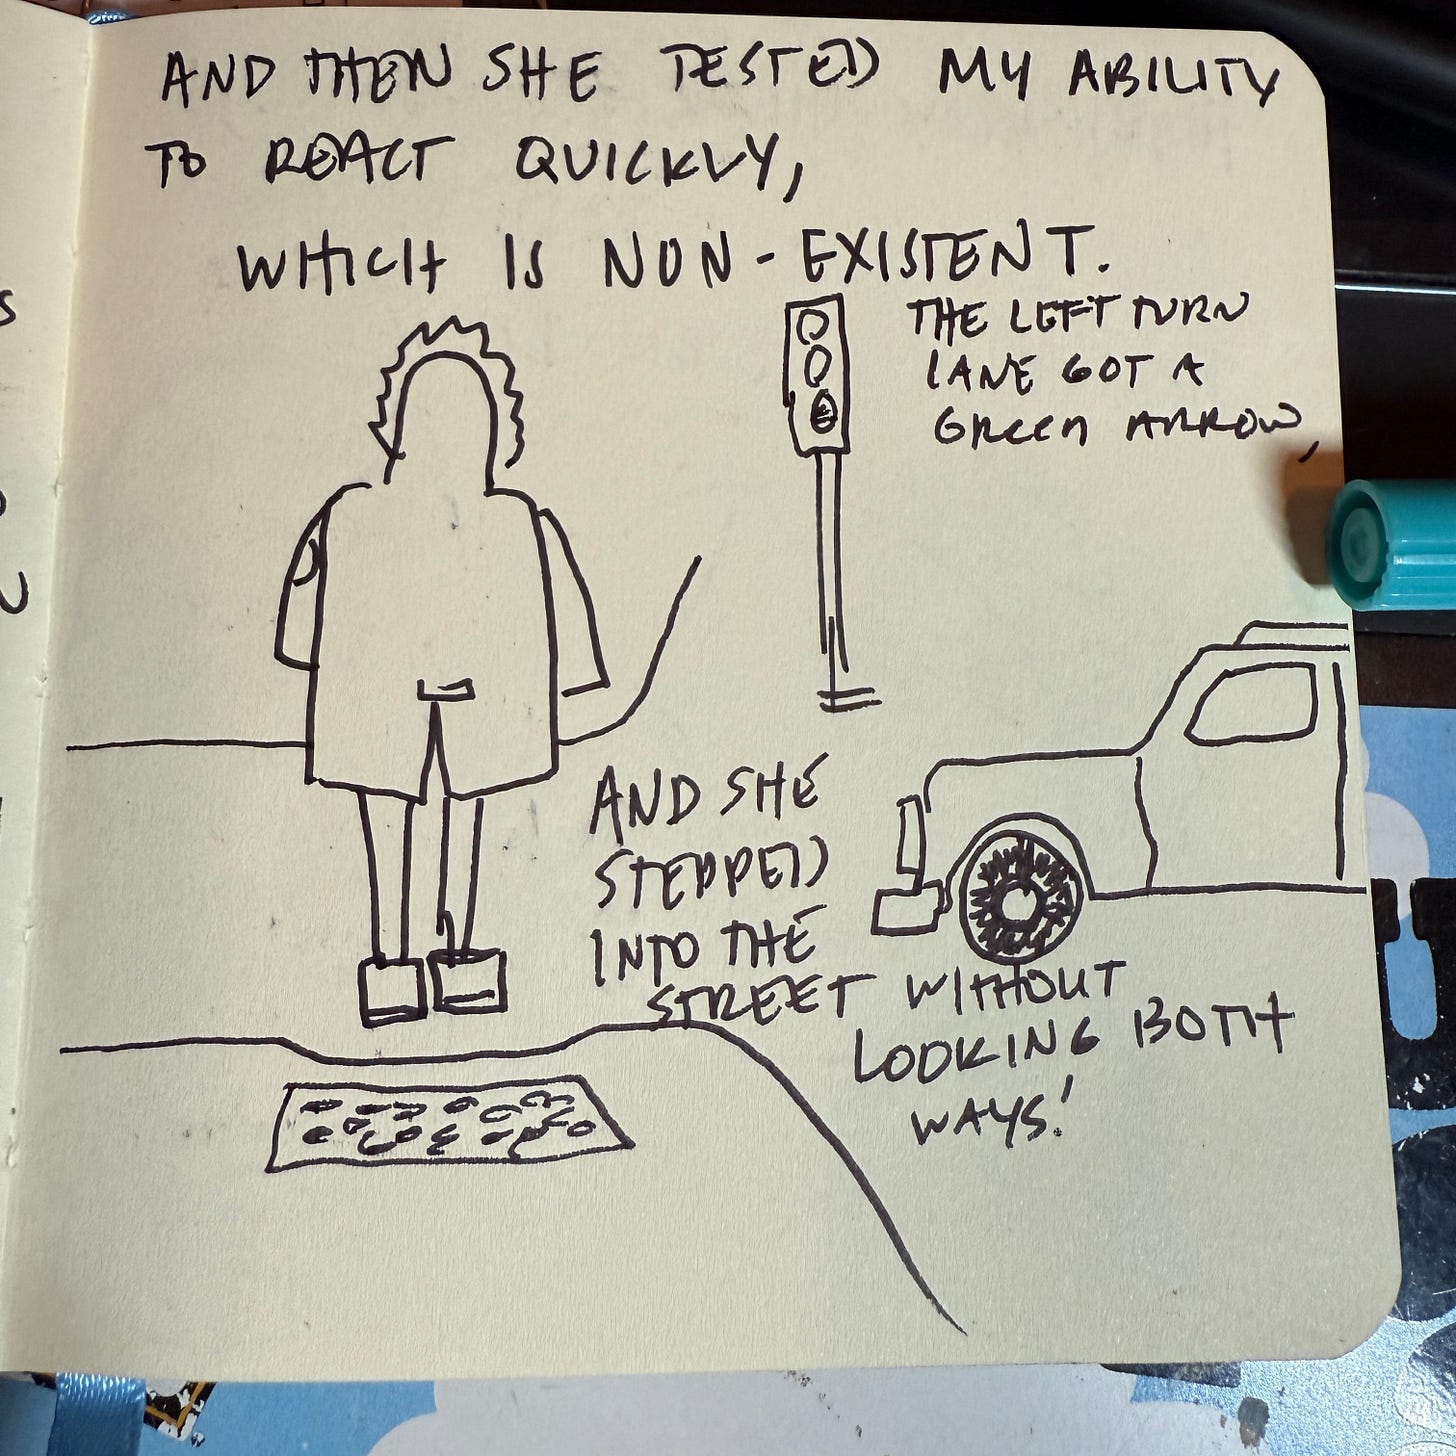 AND THEN SHE TESTED MY ABILITY
TO REACT QUICKLY,
WHICH IS NON-EXISTENT.
THE LEFT TURN
LANE GOT A
GREEN ARROW,
AND SHE
STEPPED
INTO THE
STREET WITHOUT
LOOKING BOTH
WAYS!